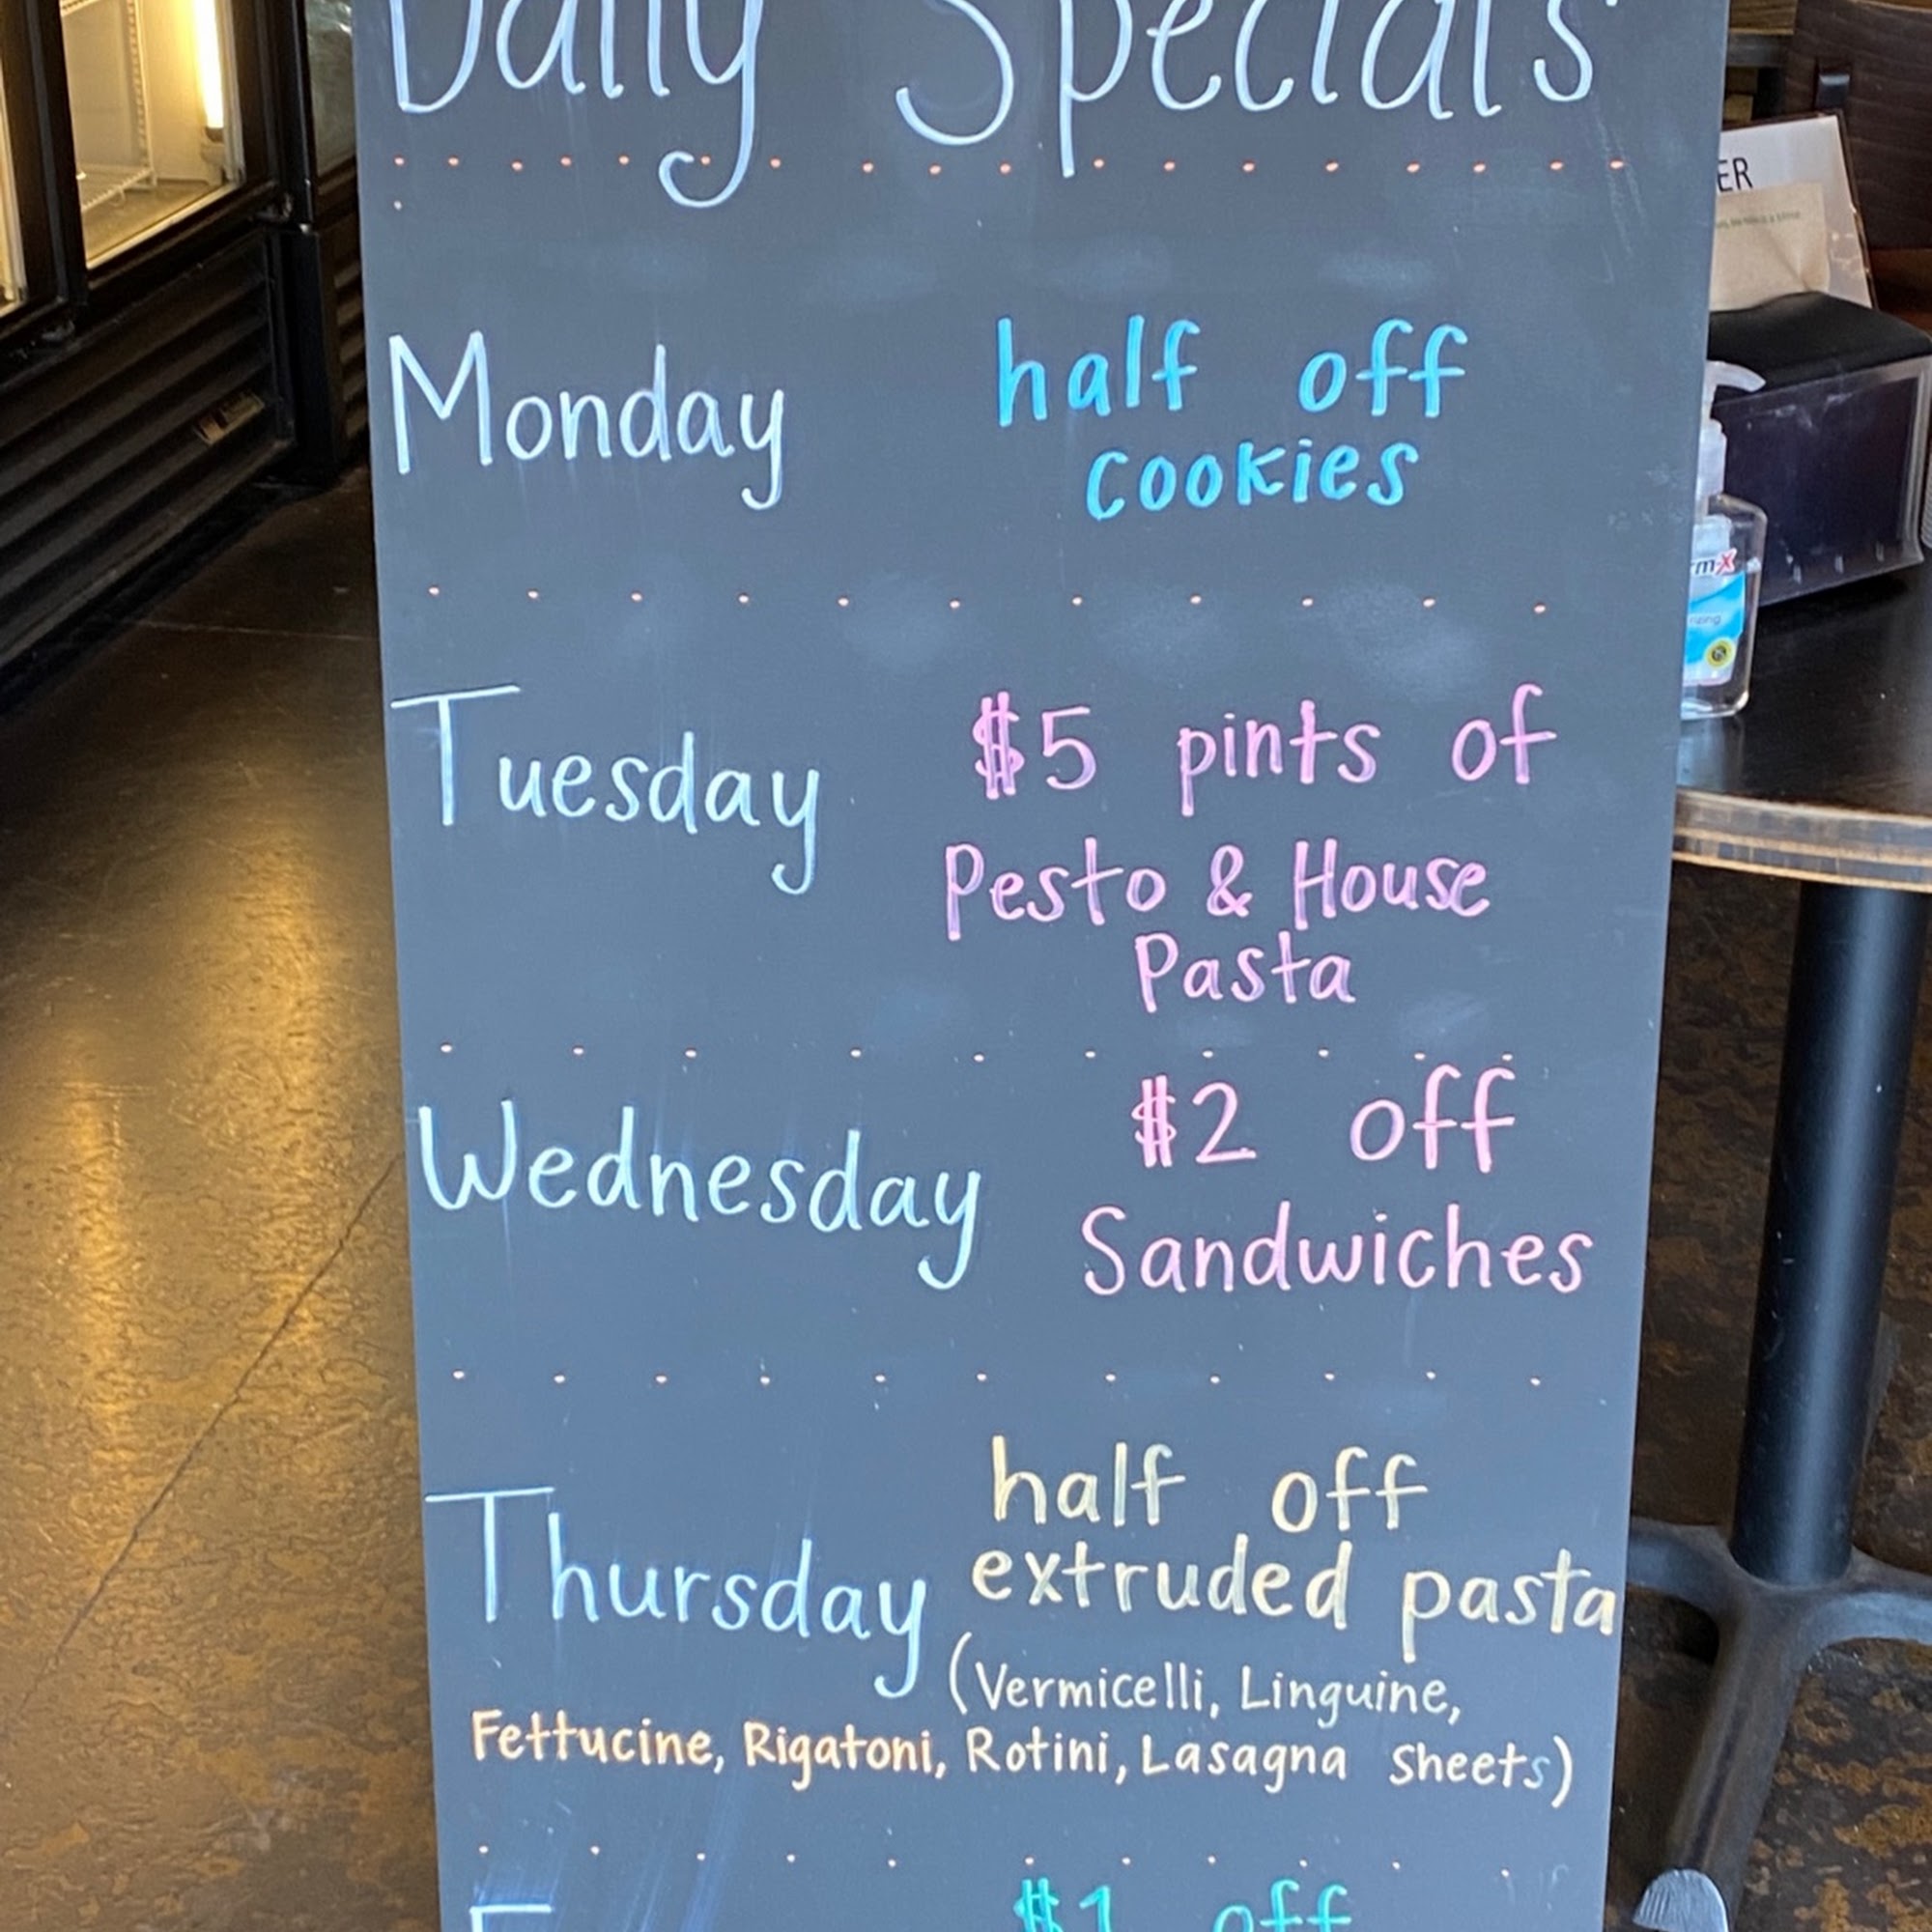 Daily Specials
Monday
half off
cookies
Tuesday
$5 pints of
Pesto & House
Pasta
Wednesday
$2 off
Sandwiches
Thursday
half off
extruded pasta
(Vermicelli, Linguine,
Fettucine, Rigatoni, Rotini, Lasagna Sheets)
$1 off
ER